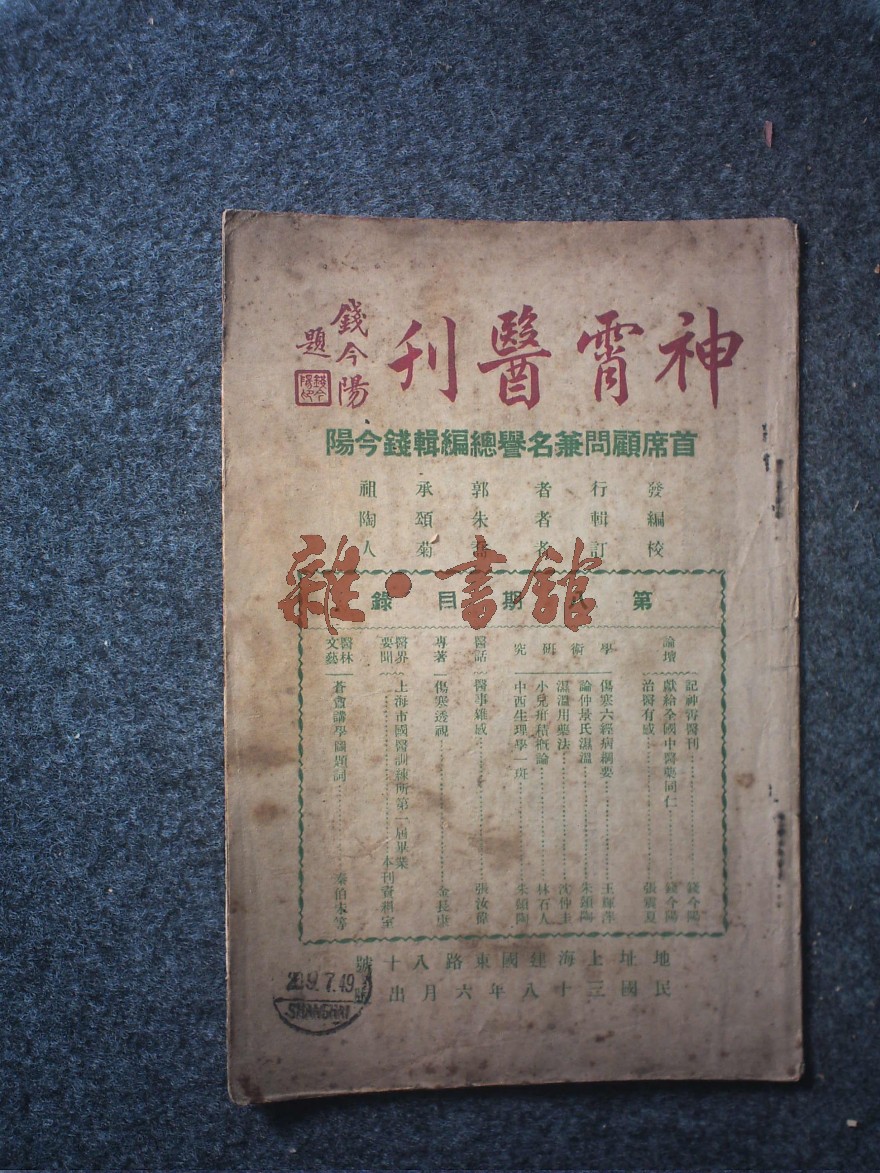 神霄醫刊
錢今陽
題
首席顧問兼名譽總編輯錢今陽
發行者 郭承祖
編輯者 朱頌陶
校訂者 菊人
第 期目錄
論壇
記神霄醫刊 錢今陽
獻給全國中醫藥同仁 錢今陽
治醫有感 張震夏
學術研究
傷寒六經病綱要 王輝萍
論仲景氏濕溫 朱頌陶
濕溫用藥法 沈仲圭
小兒疳積概論 林石人
中西生理學一斑 朱頌陶
醫話
醫事雜感 張汝偉
專著
傷寒透視 金長康
醫界要聞
上海市國醫訓練所第一屆畢業 本刊資料室
醫林文藝
蒼齋講學圖題詞 秦伯未等
地址上海建國東路八十號
民國三十八年六月出
7.49
SHANGHAI
雜·書館